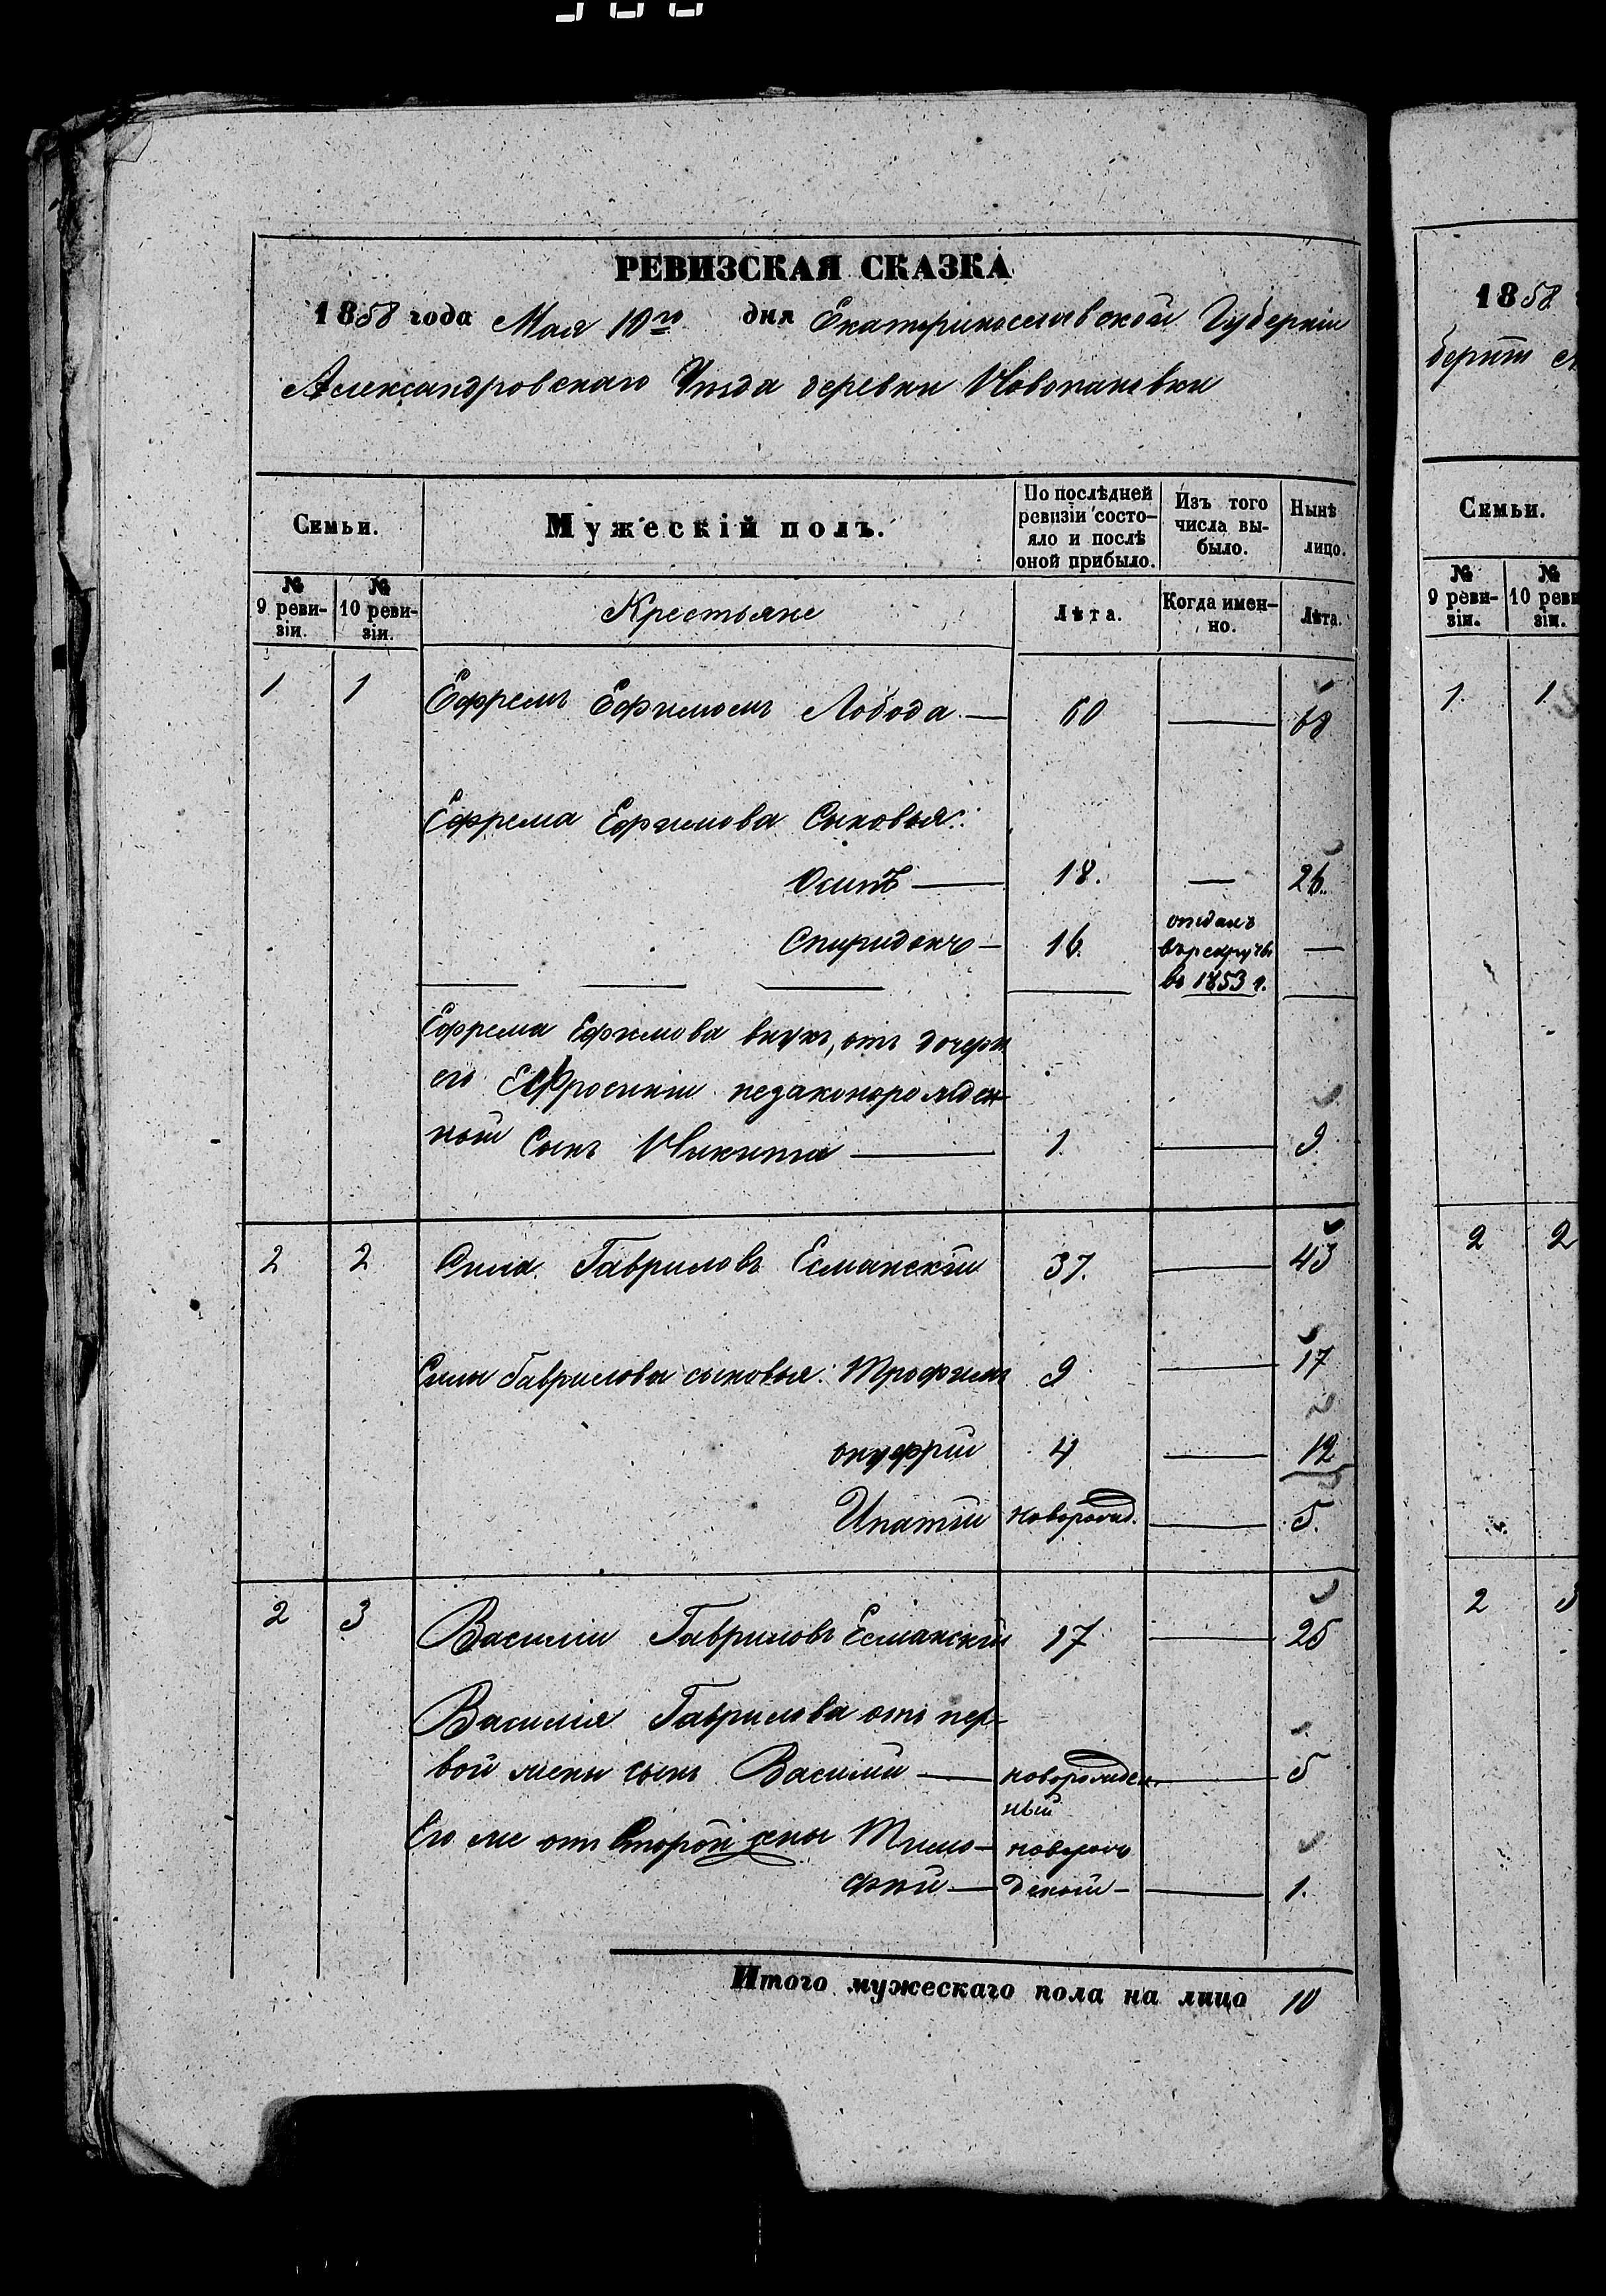 РЕВИЗСКАЯ СКАЗКА
1858 года Мая 10го дня Екатеринославской Губерніи
Александровскаго Уѣзда деревни Новопановки
Семьи.
Мужескій полъ.
По послѣдней ревизіи состо-
яло и послѣ
оной прибыло.
Изъ того
числа вы-
было.
Нынѣ
лицо.
№
9 реви-
зіи.
№
10 реви-
зіи.
Крестьяне
Лѣта.
Когда имен-
но.
Лѣта.
1 1 Ефремъ Ефимовъ Лобода — 60 — 68
Ефрема Ефимова Сыновья:
Осипъ — 18. — 26.
Спиридонъ — 16. отданъ
въ рекруты —
въ 1853 г.
Ефрема Ефимова внукъ, отъ дочери
его Ефросиніи незаконорожден-
ной Сынъ Никита — 1. — 9.
2 2 Сила Гавриловъ Есманскій 37. — 43
Силы Гаврилова сыновья: Трофимъ 9 — 17
Онуфрій 4 — 12
Ипатій новорожд. — 5.
2 3 Василій Гавриловъ Есманскій 17 — 25
Василія Гаврилова отъ пер-
вой жены сынъ Василій — новорожден- — 5
ный
Его же отъ второй жены Тимо- новорож
фей — деной — 1.
Итого мужескаго пола на лицо 10
1858
Семьи.
№
9 реви-
зіи.
№
10 реви
зіи.
1. 1.
2 2
2 3